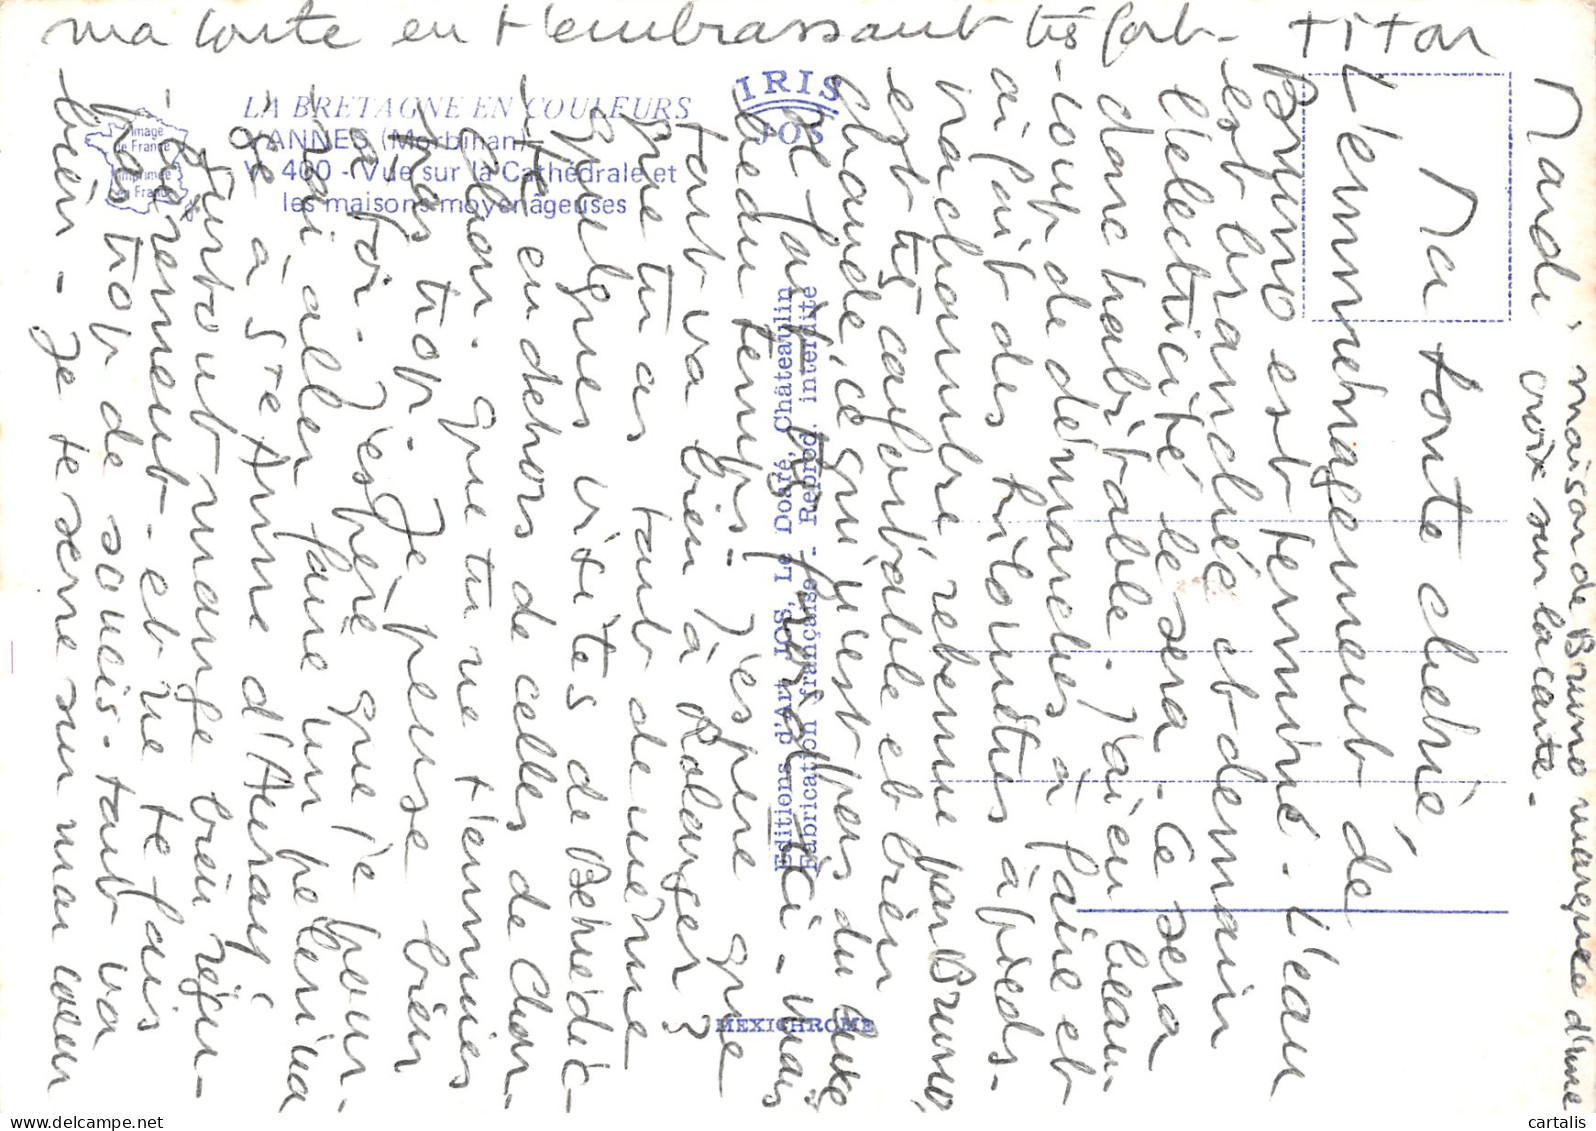 Mardi,
maison de Bruno marquée d'une
croix sur la carte.
Ma toute chérie,
L'emménagement de
Bruno est terminé. L'eau
est branchée et demain
l'électricité le sera. Ce sera
donc habitable. J'ai eu beau-
-coup de démarches à faire et
ai fait des kilomètres à pieds.
ma chambre retenue par Bruno,
est très confortable et bien
chaude, ce qui n'est pas du luxe
il fait très froid ici - mais
beau temps! J'espère que
tout va bien à Bolanger?
que tu as tout de même
quelques visites de Bénédic-
-te en dehors de celles de Chon-
Chon. que tu ne t'ennuies
pas trop. Je pense bien
à toi. J'espère que je pour-
-rai aller faire un pélerina
-ge à Ste Anne d'Auray!
surtout mange bien régu-
-lièrement - et ne te fais
pas trop de soucis. tout va
bien - Je te serre sur mon cœur
ma toute en t'embrassant très fort - titon
LA BRETAGNE EN COULEURS
VANNES (Morbihan)
V. 400 - Vue sur la Cathédrale et
les maisons moyenâgeuses
Image
de France
Imprimée
en France
IRIS
JOS
Editions d'Art JOS, Le Doaré, Châteaulin
Fabrication française - Reprod. interdite
MEXICHROME
delcampe.net
cartalis